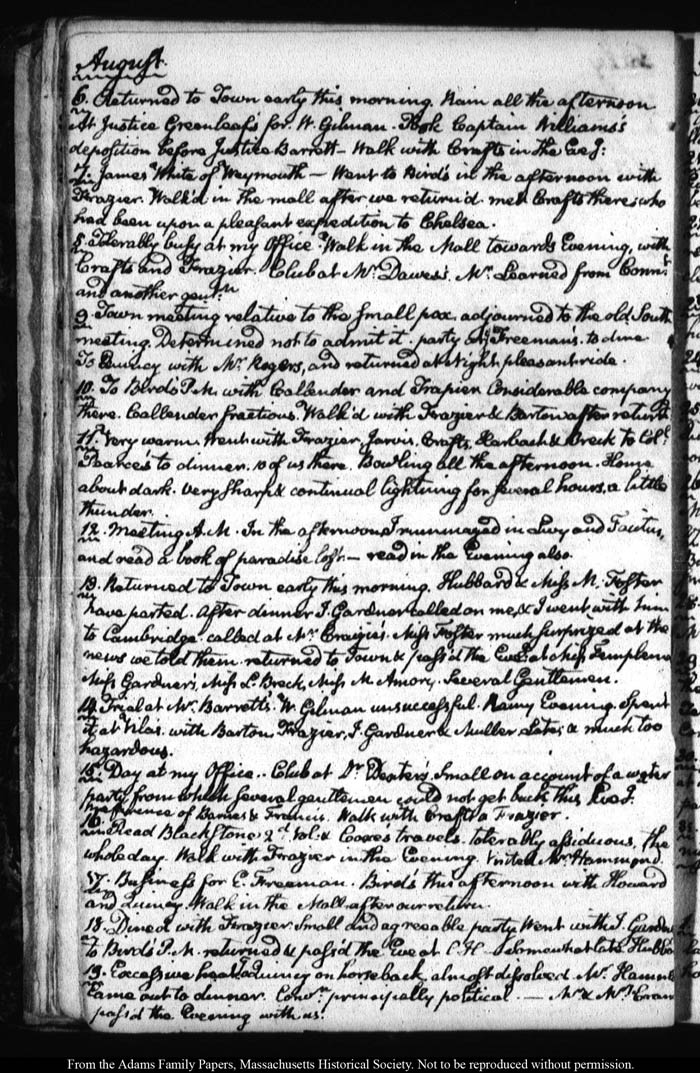 August.
6. Returned to Town early this morning. Rain all the afternoon
At Justice Greenleaf's for W. Gilman. Took Captain Williams's
deposition before Justice Barrett - Walk with Crafts in the Eveg:
7. James White of Weymouth - Went to Bird's in the afternoon with
Frazier. Walk'd in the mall after we return'd. met Crafts there, who
had been upon a pleasant expedition to Chelsea.
8. Tolerably busy at my Office. Walk in the Mall towards Evening, with
Crafts and Frazier. Club at Mr. Dawes's. Mr. Learned from Connt:
and another gentn.
9. Town meeting relative to the small pox. adjourned to the old South
meeting. Determined not to admit it. party at Freeman's. to dine
To Quincy with Mr. Rogers, and returned at Night. pleasant ride.
10. To Bird's P.M. with Callender and Frazier. Considerable company
there. Callender fractious. Walk'd with Frazier & Barton after return
11. Very warm. Went with Frazier, Jarvis, Crafts, Harbach & Breck to Coll:
Pearce's to dinner. 10 of us there. Bowling all the afternoon. Home
about dark. very sharp & continual lightning for several hours, a little
thunder.
12. Meeting A.M. In the afternoon I rummaged in Livy and Tacitus,
and read a book of paradise lost. - read in the Evening also.
13. Returned to Town early this morning. Hubbard & Miss M. Foster
have parted. After dinner J. Gardner called on me, & I went with him
to Cambridge. called at Mr. Craigie's. Miss Foster much surprized at the
news we told them. returned to Town & pass'd the Eveg: at Miss
Miss Gardner's, Miss L. Breck, Miss M. Amory. Several Gentlemen.
14. Trial at Mr. Barrett's. W. Gilman unsuccessful. Rainy Evening. Spent
it at Vila's. with Barton, Frazier, J. Gardner & Muller. Late; & much too
hazardous.
15. Day at my Office. Club at Dr. Dexter's. Small on account of a water
party from which several gentlemen could not get back this Eveg.
preference of Barnes & Francis. Walk with Crafts & Frazier.
16. Read Blackstone 2d. Vol: & Coxe's travels. tolerably assiduous, the
whole day. Walk with Frazier in the Evening. Visited Mr. Hammond.
17. Business for E. Freeman. Bird's this afternoon with Howard
and Quincy. Walk in the Mall after our return.
18. Dined with Frazier. Small and agreeable party. Went with J. Gardner
To Bird's P.M. returned & pass'd the Eve at C.H. Somewhat late.
19. Excessive heat. Quincy on horseback, almost dissolved. Mr.
Came out to dinner. Conv:n principally political. - Mr. & Mrs.
pass'd the Evening with us.
From the Adams Family Papers, Massachusetts Historical Society. Not to be reproduced without permission.